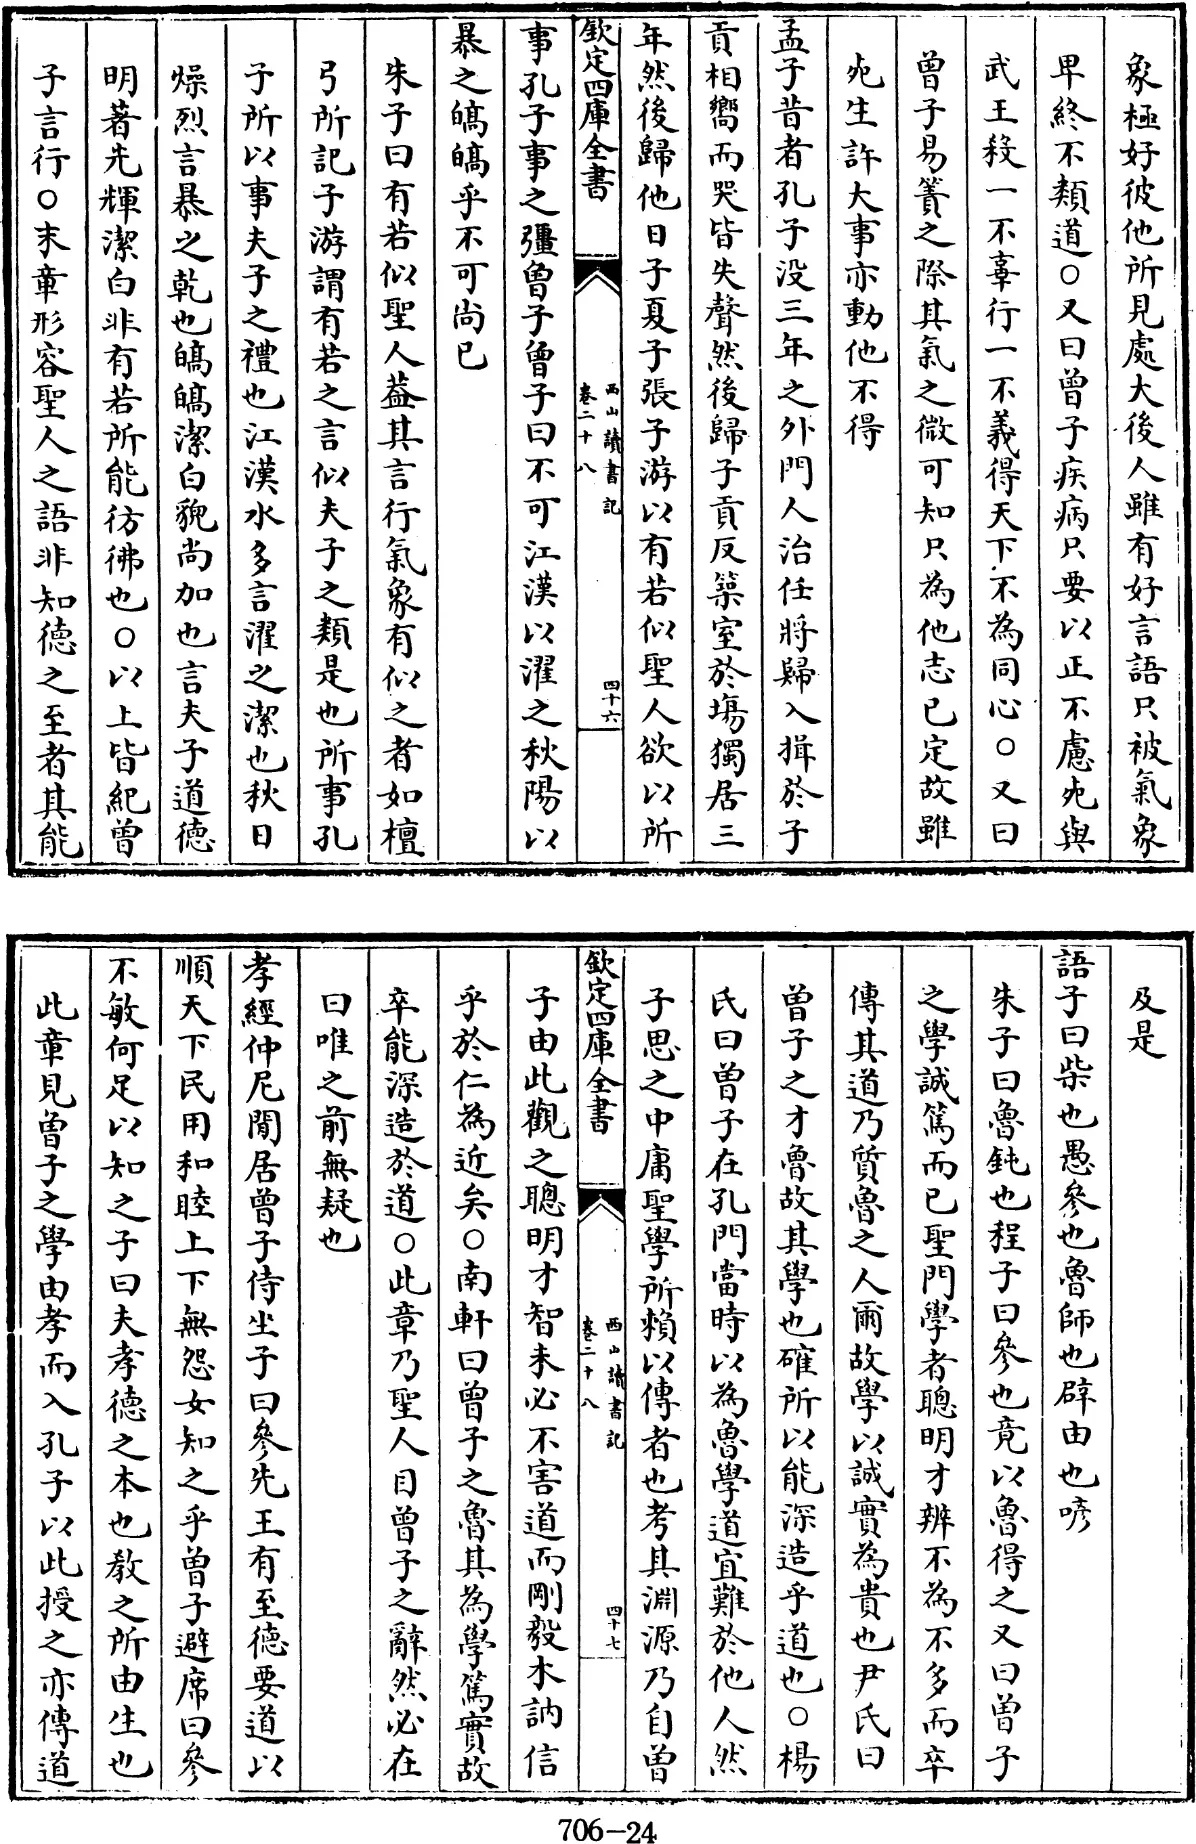 象極好彼他所見處大後人雖有好言語只被氣象
卑終不類道○又曰曾子疾病只要以正不慮死與
武王殺一不辜行一不義得天下不為同心○又曰
曾子易簀之際其氣之微可知只為他志已定故雖
死生許大事亦動他不得
孟子昔者孔子没三年之外門人治任將歸入揖於子
貢相嚮而哭皆失聲然後歸子貢反築室於場獨居三
年然後歸他日子夏子張子游以有若似聖人欲以所
欽定四庫全書
西山讀書記
卷二十八
四十六
事孔子事之彊曾子曾子曰不可江漢以濯之秋陽以
暴之皜皜乎不可尚已
朱子曰有若似聖人蓋其言行氣象有似之者如檀
弓所記子游謂有若之言似夫子之類是也所事孔
子所以事夫子之禮也江漢水多言濯之潔也秋日
燥烈言暴之乾也皜皜潔白貌尚加也言夫子道德
明著光輝潔白非有若所能彷彿也○以上皆紀曾
子言行○末章形容聖人之語非知德之至者其能
及是
語子曰柴也愚參也魯師也辟由也喭
朱子曰魯鈍也程子曰參也竟以魯得之又曰曾子
之學誠篤而已聖門學者聰明才辨不為不多而卒
傳其道乃質魯之人爾故學以誠實為貴也尹氏曰
曾子之才魯故其學也確所以能深造乎道也○楊
氏曰曾子在孔門當時以為魯學道宜難於他人然
子思之中庸聖學所賴以傳者也考其淵源乃自曾
欽定四庫全書
西山讀書記
卷二十八
四十七
子由此觀之聰明才智未必不害道而剛毅木訥信
乎於仁為近矣○南軒曰曾子之魯其為學篤實故
卒能深造於道○此章乃聖人目曾子之辭然必在
曰唯之前無疑也
孝經仲尼閒居曾子侍坐子曰參先王有至德要道以
順天下民用和睦上下無怨女知之乎曾子避席曰參
不敏何足以知之子曰夫孝德之本也教之所由生也
此章見曾子之學由孝而入孔子以此授之亦傳道
706-24